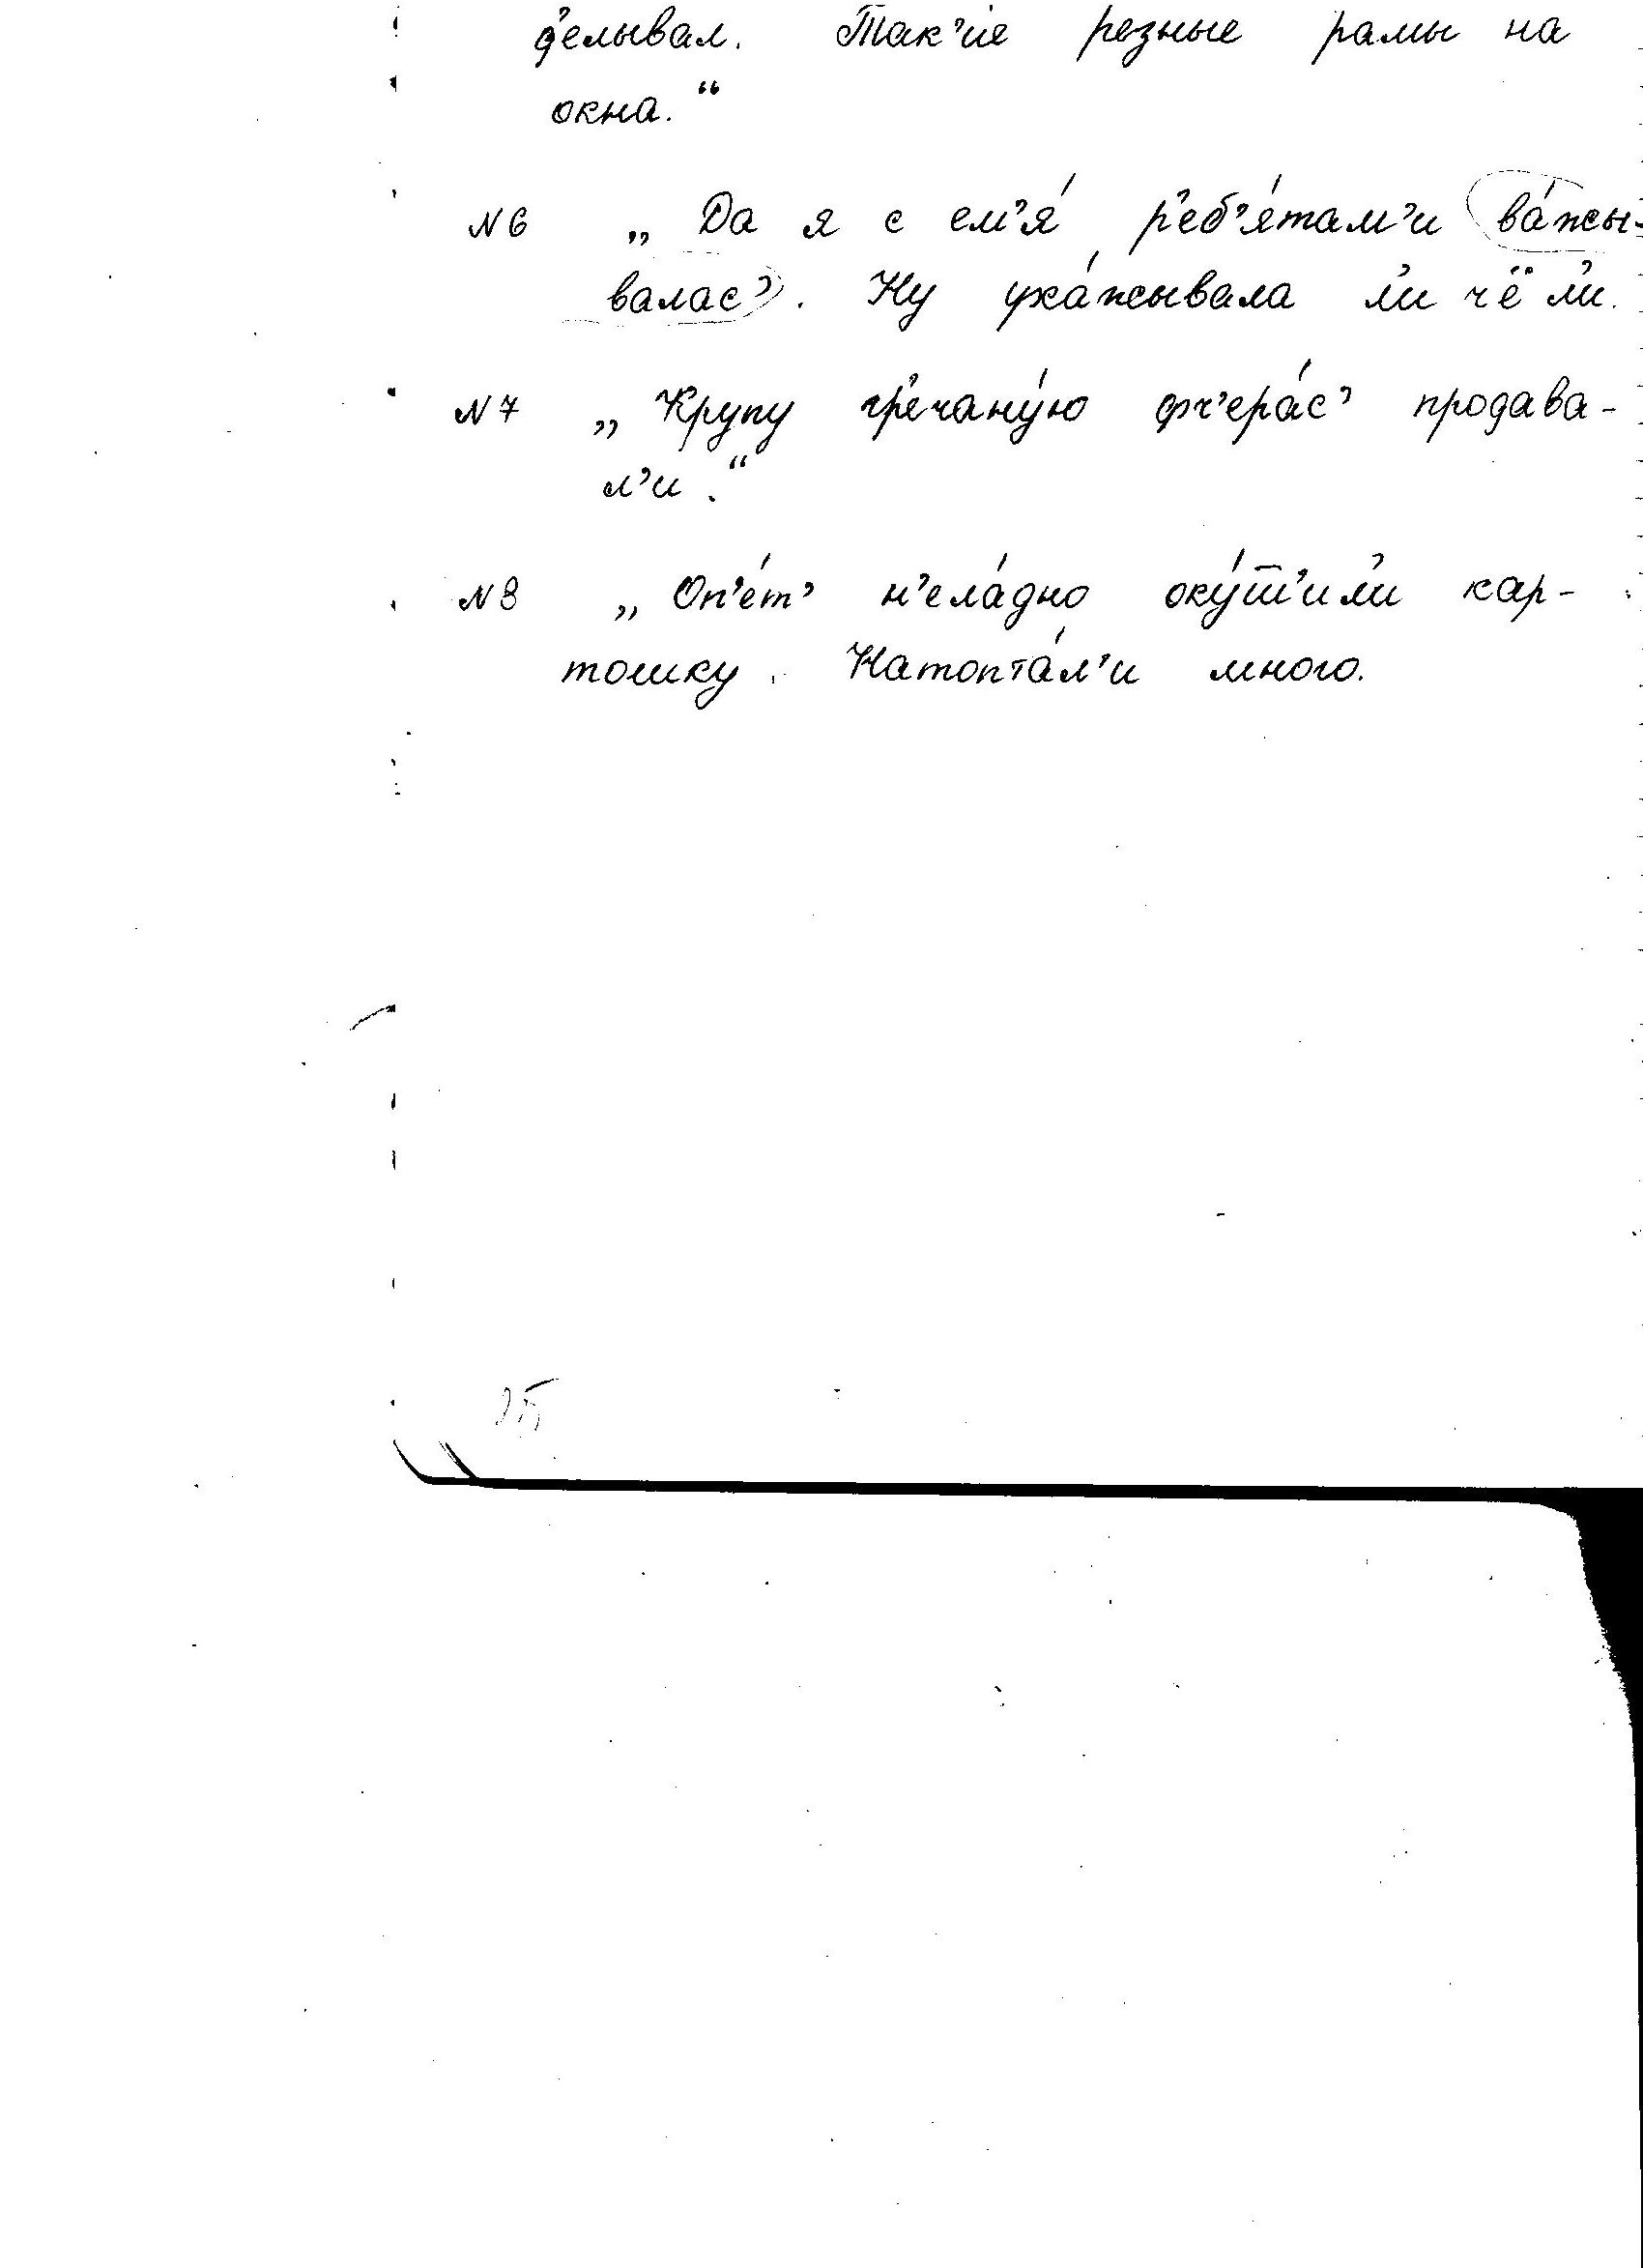 д'елывал. Так'ие резные рамы на
окна.“
N6 „Да я с ем'я́ р'еб'я́там'и ва́жы-
валас'. Ну уха́жывала л'и чё л'и.
N7 „Крупу гр'ечану́ю фч'ера́с' продава-
л'и.“
N8 „Оп'е́т' н'ела́дно оку́т̅'ил'и кар-
тошку. Натопта́л'и много.